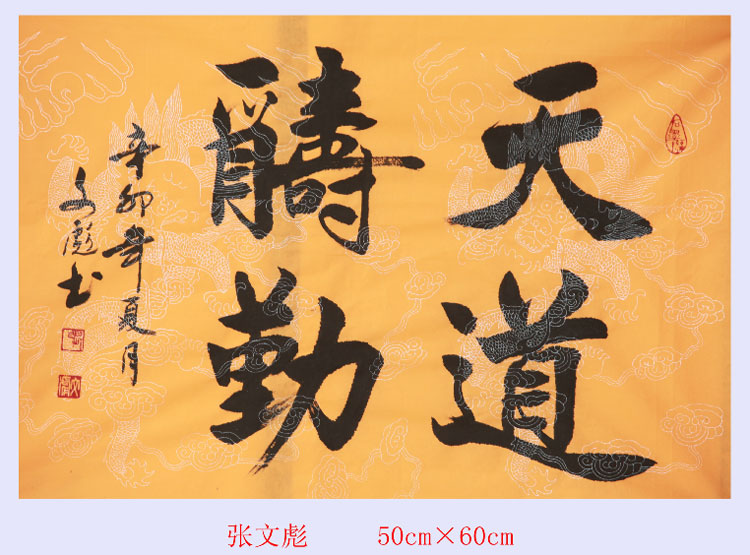 天道
醻勤
辛卯年夏月
文彪书
张文彪 50cm×60cm